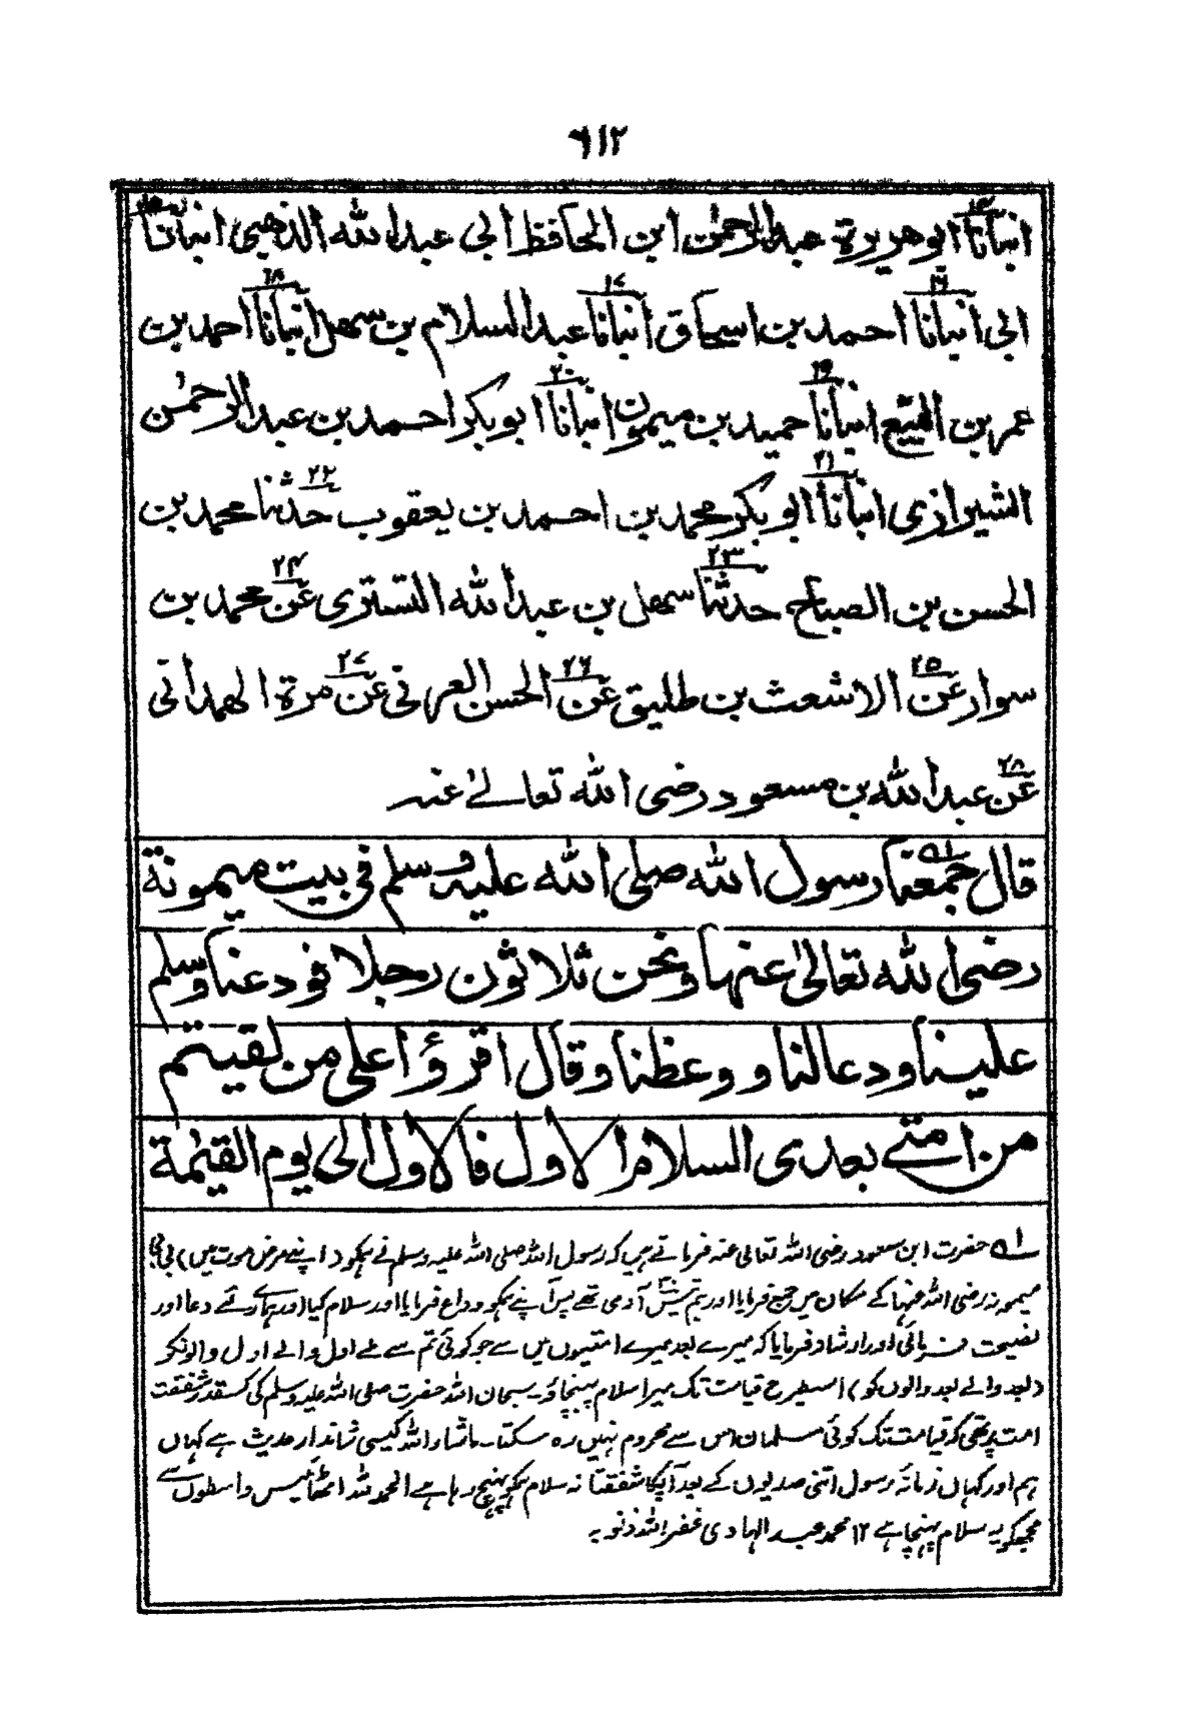 ۶۱۲
انبأنا ابوهريرة عبدالرحمٰن ابن الحافظ ابی عبدالله الذهبی انبأنا
ابی انبأنا احمد بن اسحاق انبأنا عبدالسلام بن سهل انبأنا احمد بن
عمر بن البیع انبأنا حمید بن میمون انبأنا ابوبکر احمد بن عبدالرحمٰن
الشیرازی انبأنا ابوبکر محمد بن احمد بن یعقوب حدثنا محمد بن
الحسن بن الصباح حدثنا سهل بن عبدالله التستری عن محمد بن
سوار عن الاشعث بن طلیق عن الحسن العرنی عن مرة الهمدانی
عن عبدالله بن مسعود رضی الله تعالیٰ عنه
قال جمعنا رسول الله صلی الله علیه وسلم فی بیت میمونة
رضی الله تعالیٰ عنها ونحن ثلاثون رجلا فودعنا وسلم
علینا ودعا لنا ووعظنا وقال اقرؤا علی من لقیتم
من امتی بعدی السلام الاول فالاول الی یوم القیٰمة
۱ے حضرت ابن مسعود رضی اللہ تعالی عنہ فرماتے ہیں کہ رسول اللہ صلی اللہ علیہ وسلم نے ہمکو (اپنے مرض موت میں) بی بی
میمونہ رضی اللہ عنہا کے مکان میں جمع فرمایا اور ہم تیس آدمی تھے پس آپنے ہمکو وداع فرمایا اور سلام کیا اور ہمارے لئے دعا اور
نصیحت فرمائی اور ارشاد فرمایا کہ میرے بعد میرے امتیوں میں سے جو کوئی تم سے ملے اول والے اول والونکو
(بعد والے بعد والوں کو) اسیطرح قیامت تک میرا سلام پہنچاؤ۔ سبحان اللہ حضرت صلی اللہ علیہ وسلم کی کسقدر شفقت
امت پر تھی کہ قیامت تک کوئی مسلمان اس سے محروم نہیں رہ سکتا۔ ماشاء اللہ کیسی شاندار حدیث ہے کہاں
ہم اور کہاں زمانۂ رسول اتنی صدیوں کے بعد آپکا شفقتانہ سلام ہمکو پہنچ رہا ہے الحمد للہ اٹھائیس واسطوں سے
مجھکو یہ سلام پہنچا ہے ۱۲ محمد عبد الہادی غفر اللہ ذنوبہ